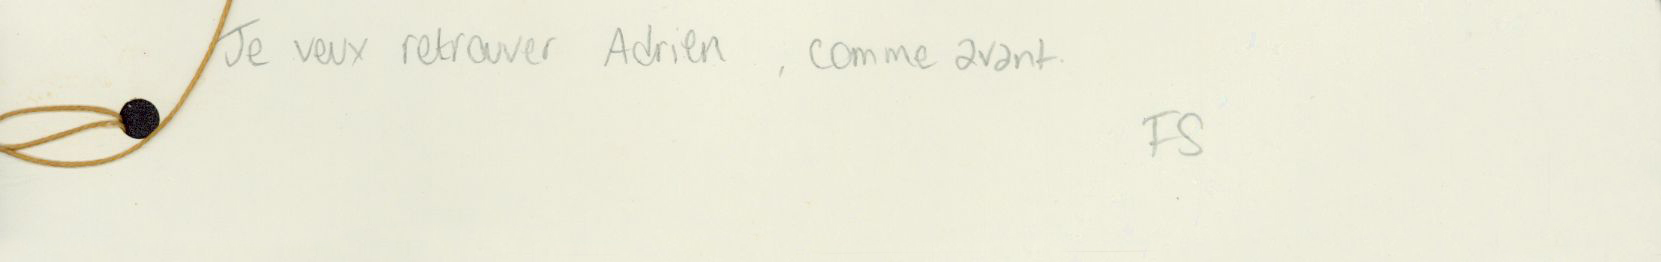 Je veux retrouver Adrien , comme avant.
FS